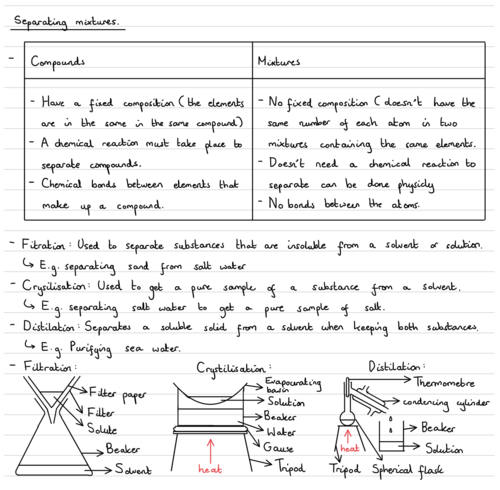 Separating mixtures.
- Compounds
- Have a fixed composition (the elements
are in the same in the same compound)
- A chemical reaction must take place to
separate compounds.
- Chemical bonds between elements that
make up a compound.
Mixtures
- No fixed composition (doesn't have the
same number of each atom in two
mixtures containing the same elements.
- Doesn't need a chemical reaction to
separate can be done physicly
- No bonds between the atoms.
- Fitration: Used to separate substances that are insoluble from a solvent or solution.
↳ E.g. separating sand from salt water
- Crysilisation: Used to get a pure sample of a substance from a solvent.
↳ E.g. separating salt water to get a pure sample of salt.
- Distilation: Separates a soluble solid from a solvent when keeping both substances.
↳ E.g. Purifying sea water.
- Filtration:
Filter paper
Filter
Solute
Beaker
Solvent
Crytilisation:
Evapourating
basin
Solution
Beaker
Water
Gauze
Tripod
heat
Distilation:
Thermometre
condencing cylinder
Beaker
Solution
heat
Tripod
Spherical flask